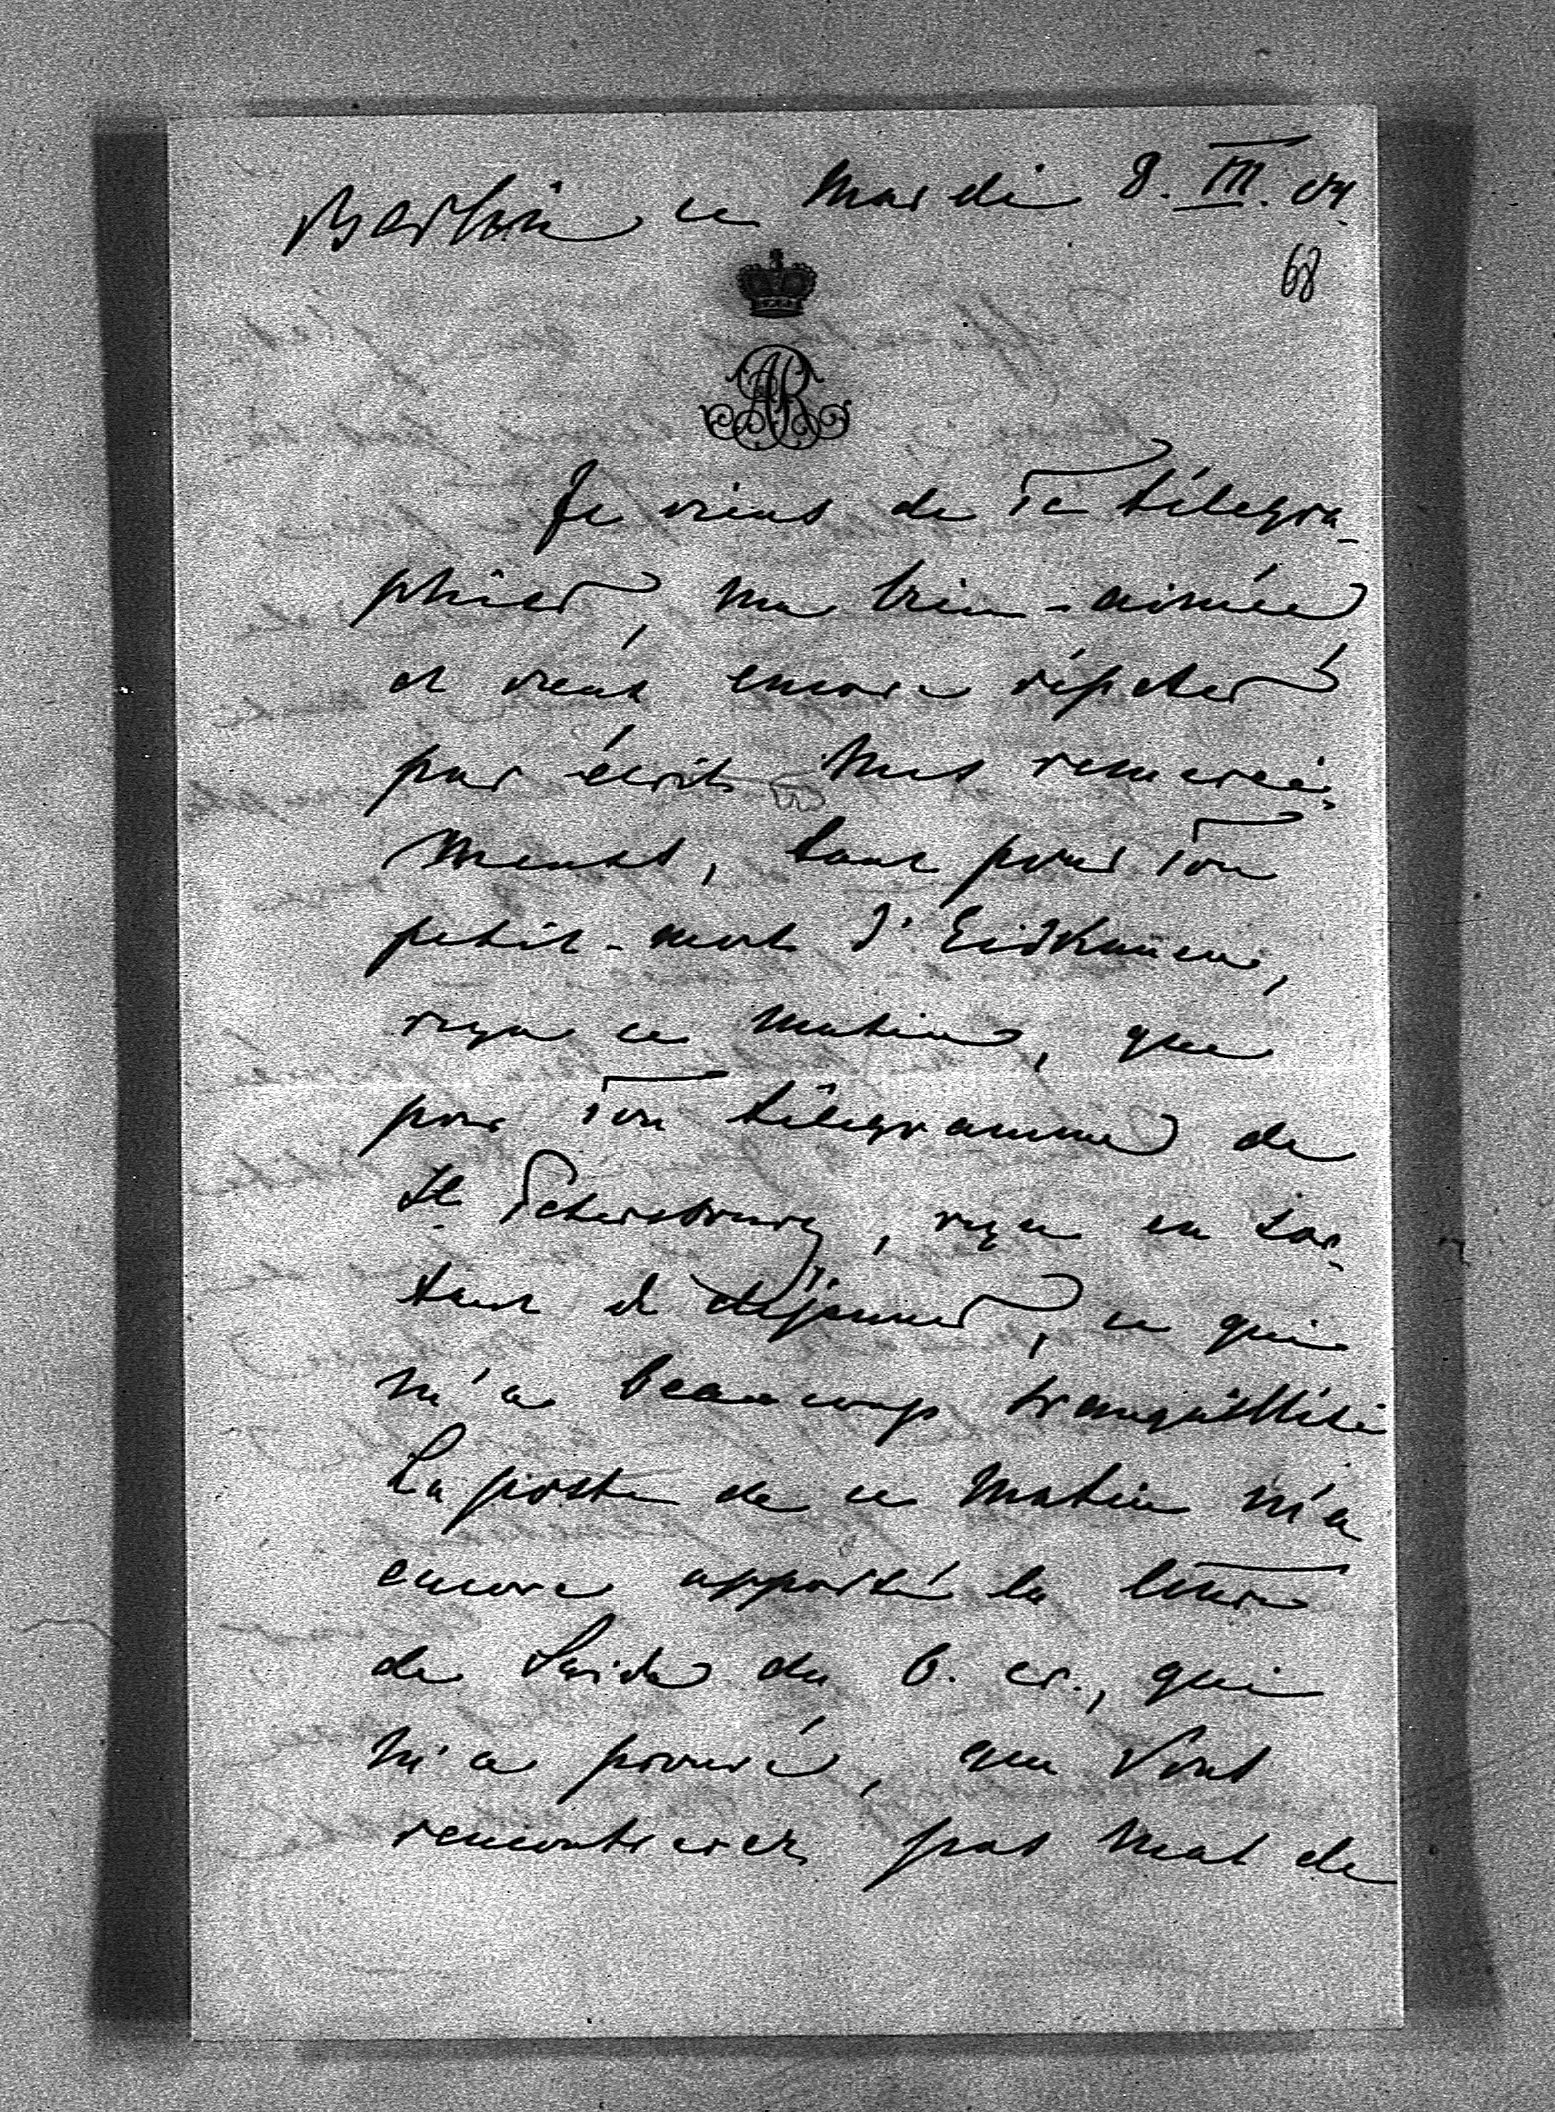 Berlin ce Mardi 8. III. 04.
68
AR
Je viens de Te télegra-
phier, ma bien-aimée
et veux encore répeter
par écrit mes remercie-
ments, tant pour Ton
petit-mot d'Eidkunen,
reçu ce matin, que
pour Ton télegramme de
St Petersbourg, reçu en sor-
tant de déjeuner, ce qui
m'a beaucoup tranquillisé
La poste de ce matin m'a
encore apporté la lettre
de du 6. cr., qui
m'a prouvé, que Vous
rencontrerez pas mal de